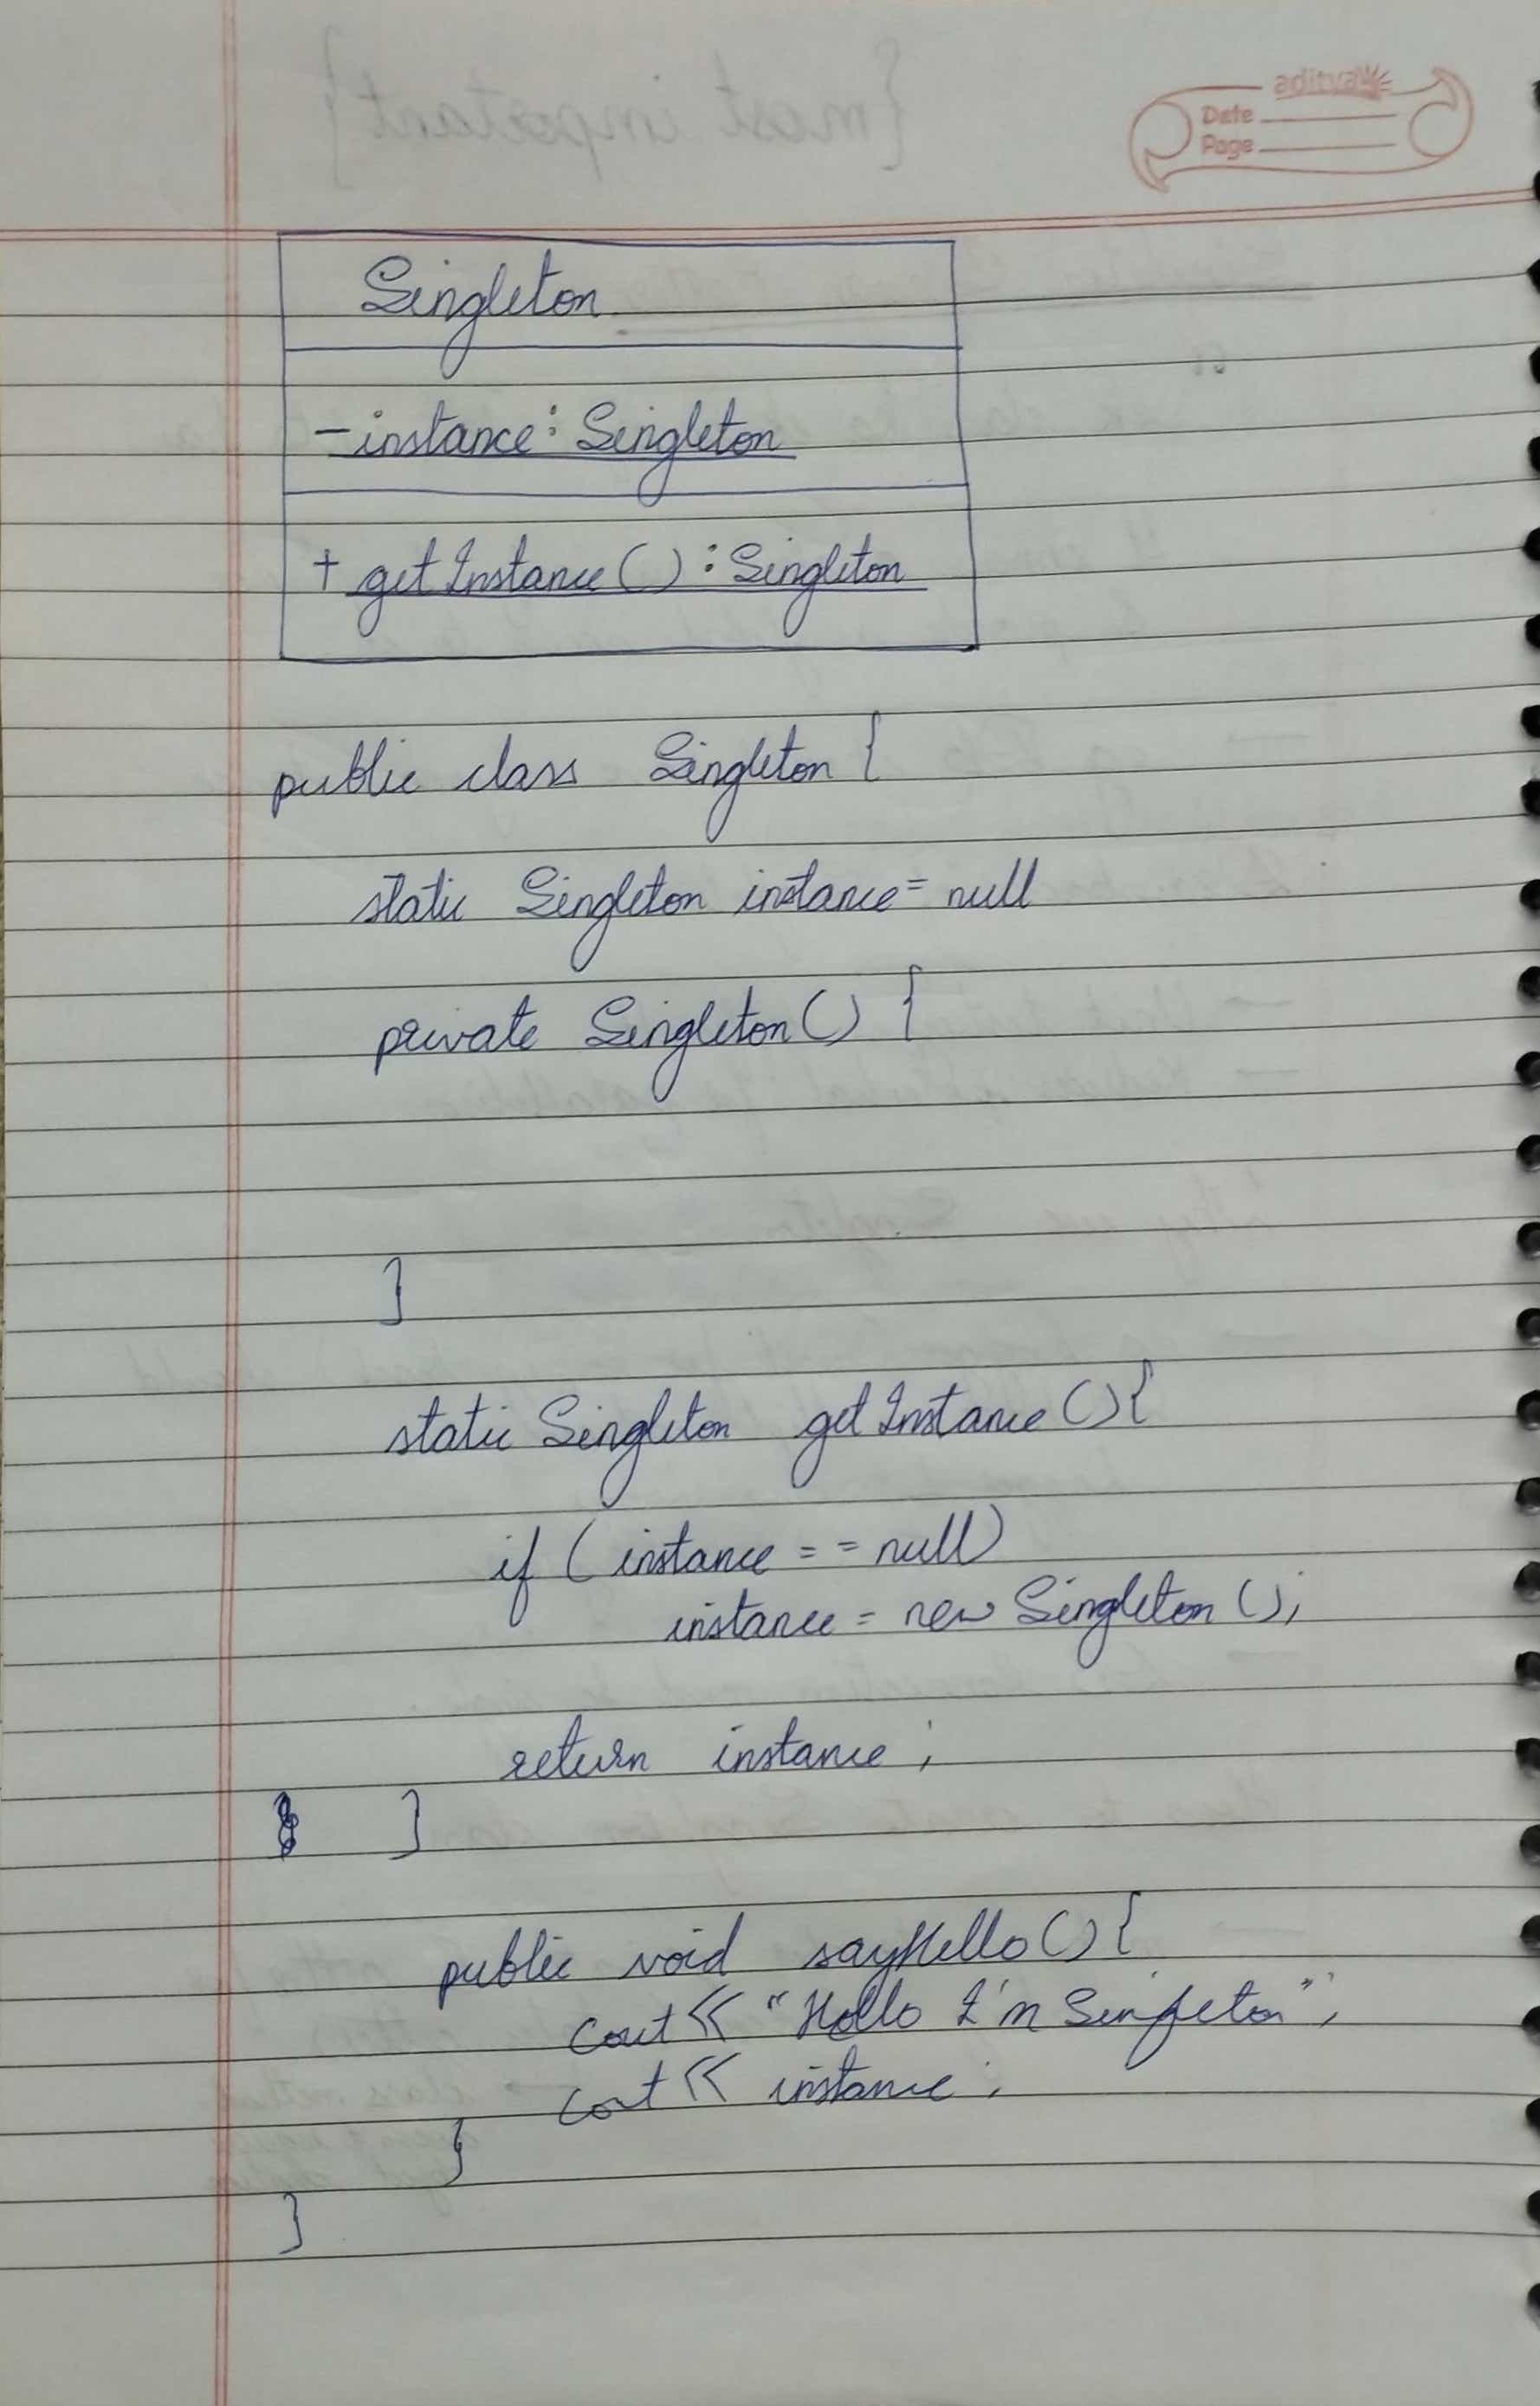 {most important}
aditya
Date
Page
Singleton
- instance : Singleton
+ getInstance() : Singleton
public class Singleton {
static Singleton instance = null
private Singleton() {
}
static Singleton getInstance() {
if (instance == null)
instance = new Singleton();
return instance;
}
public void sayHello() {
cout << "Hello I'm Singleton";
cout << instance;
}
}